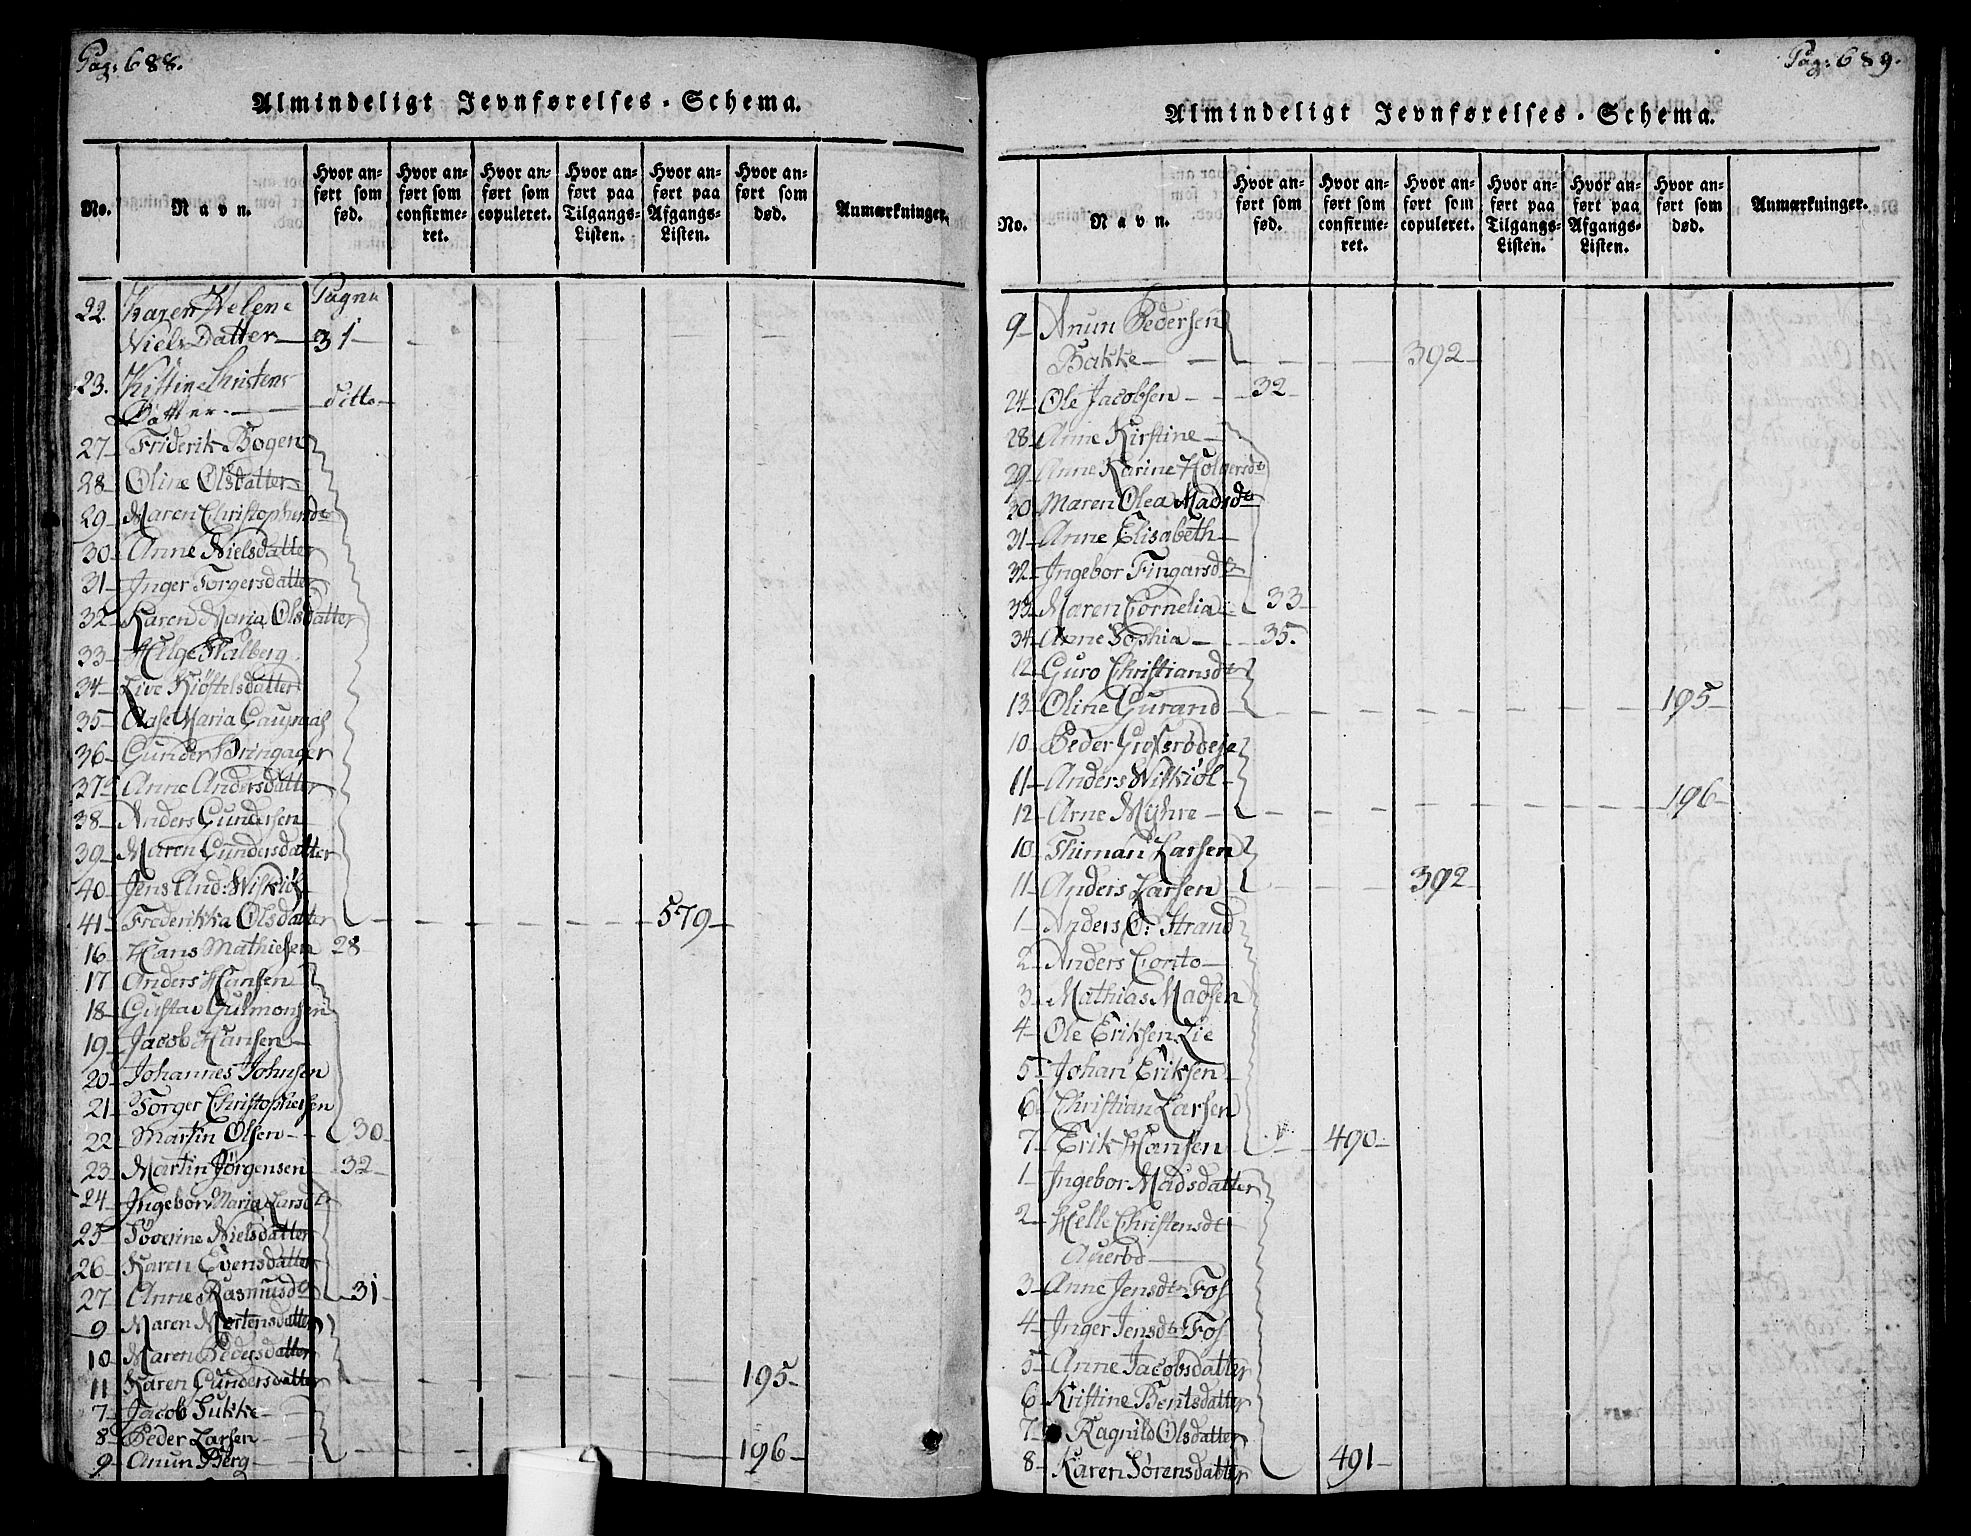 Pag: 688.
Almindeligt Jevnførelses-Schema.
No. Navn. Hvor anført som fød. Hvor anført som confirmeret. Hvor anført som copuleret. Hvor anført paa Tilgangs-Listen. Hvor anført paa Afgangs-Listen. Hvor anført som død. Anmærkninger.
22. Karen Helene Pagna
Niels Datter 31
23. Kistine Christens
Datter ditto
27 Friderik Bogen
28 Oline Olsdatter
29 Maren
30 Anne Nielsdatter
31 Inger Torgersdatter
32 Karen Maria Olsdatter
33 Helge Thalberg
34 Live
35 Aase Maria
36 Gunder
37 Anne Andersdatter
38 Anders Gundersen
39 Maren Gundersdatter
40 Jens And: Wiskiøl
41 Frederikka Olsdatter 579
16 Hans Mathiesen 28
17 Anders Hansen
18 Gustav
19 Jacob Hansen
20 Johannes Johnsen
21 Torger Christophersen
22 Martin Olsen 30
23 Martin Jørgensen 32
24 Ingebor Maria Larsdtr
25 Søverine Nielsdatter
26 Karen Evensdatter
27 Anne Rasmusd 31
9 Maren Mortensdatter
10 Maren Pedersdatter
11 Karen Gundersdatter 195
7 Jacob Sukke
8 Peder Larsen
9 Anun Berg 196
Pag: 689.
Almindeligt Jevnførelses-Schema.
No. Navn. Hvor anført som fød. Hvor anført som confirmeret. Hvor anført som copuleret. Hvor anført paa Tilgangs-Listen. Hvor anført paa Afgangs-Listen. Hvor anført som død. Anmærkninger.
9 Anun Pedersen
Bakke 392
24 Ole Jacobsen 32
28 Anne Kirstine
29 Anne Karine Holgersdt
30 Maren Olea Madsdtr
31 Anne Elisabeth
32 Ingebor
33 Maren Cornelia 33
34 Anne Sophia 35.
12 Guro Christiansdtr
13 Oline Gurand 195
10 Peder
11 Anders Wiskiøl
12 Arne Myhre 196
10 Thiman Larsen
11 Anders Larsen 392
1 Anders O: Strand
2 Anders
3 Mathias Madsen
4 Ole Eriksen Lie
5 Johan Eriksen
6 Christian Larsen
7 Erik Hansen 490
1 Ingebor Madsdatter
2 Helle Christensdt
3 Anne Jensdtr Fos
4 Inger Jensdtr Fos
5 Anne Jacobsdatter
6 Kristine Bentsdatter
7 Ragnild Olsdatter
8 Karen Sørensdatter 491